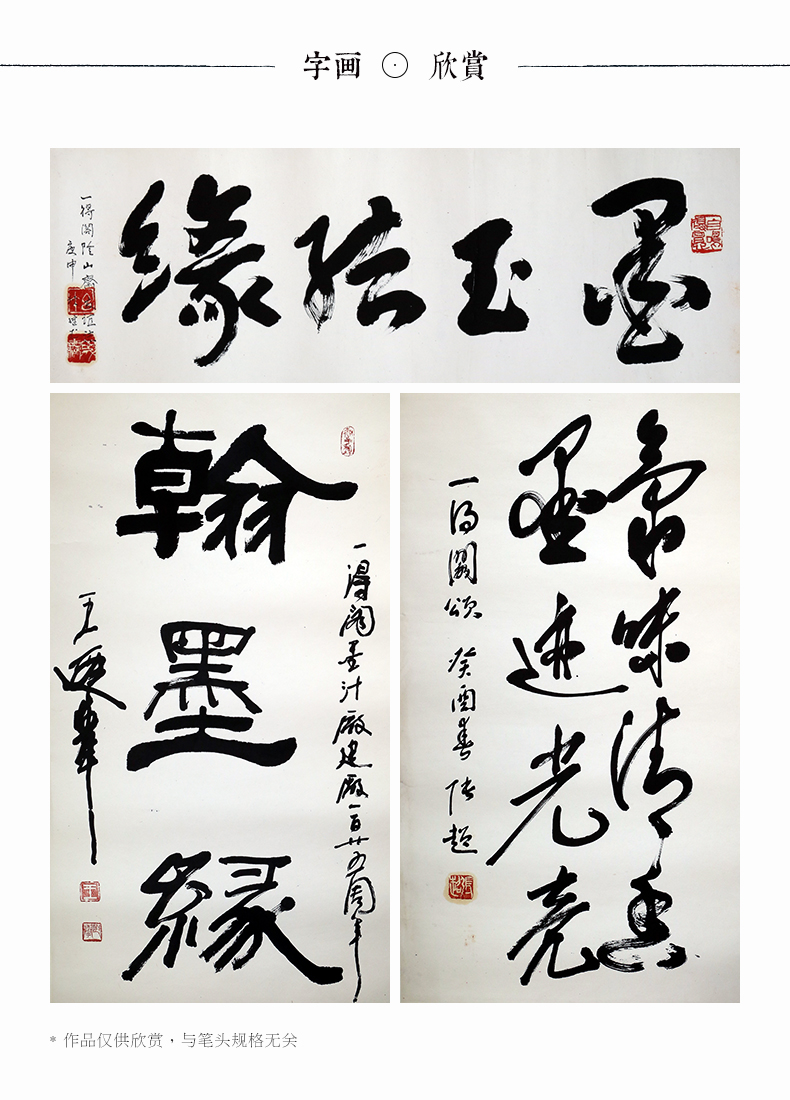 字画 欣賞
墨玉结缘
一得阁
庚申
翰墨緣
一得阁墨汁厰建厰一百廿五周年
王遐举
气味清香
墨迹光亮
一得阁颂 癸酉春 张超
* 作品仅供欣赏，与笔头规格无关